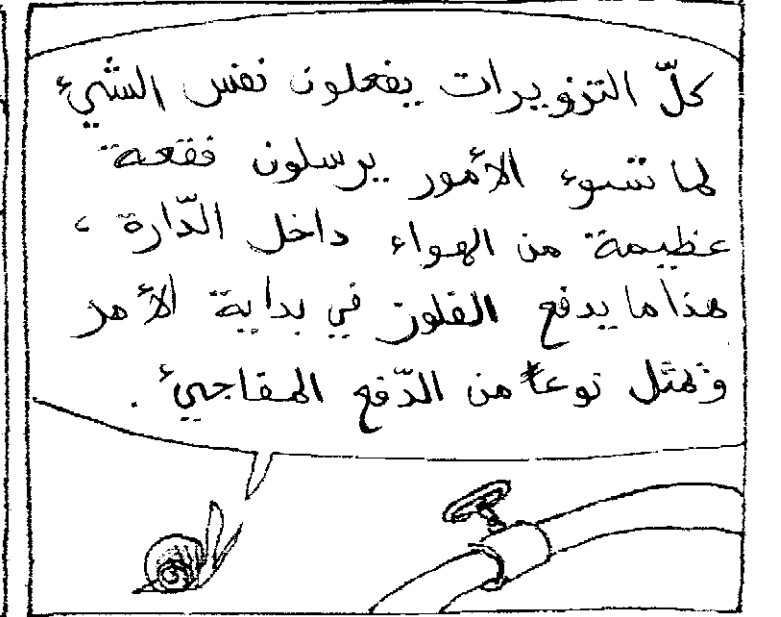 كلّ التزويرات يفعلون نفس الشيء
لما تسوء الأمور يرسلون فقعة
عظيمة من الهواء داخل الدّارة ،
هذا ما يدفع الفلوز في بداية الأمر
وتمثل نوعاً من الدّفع المفاجيئ .